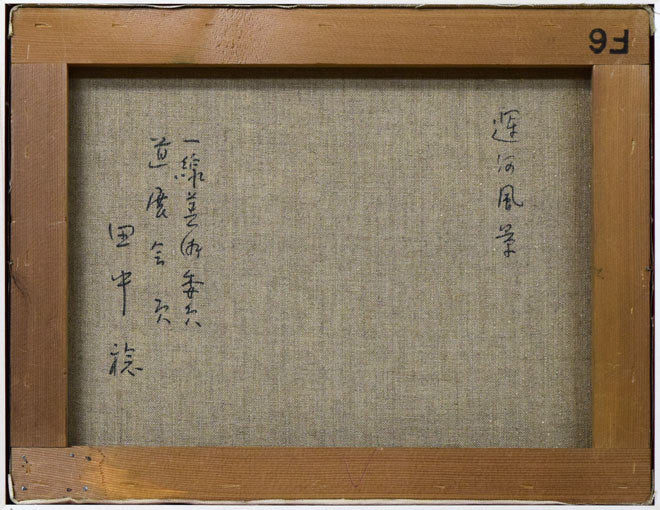 F6
運河風景
一線美術委員
道展会員
田中稔